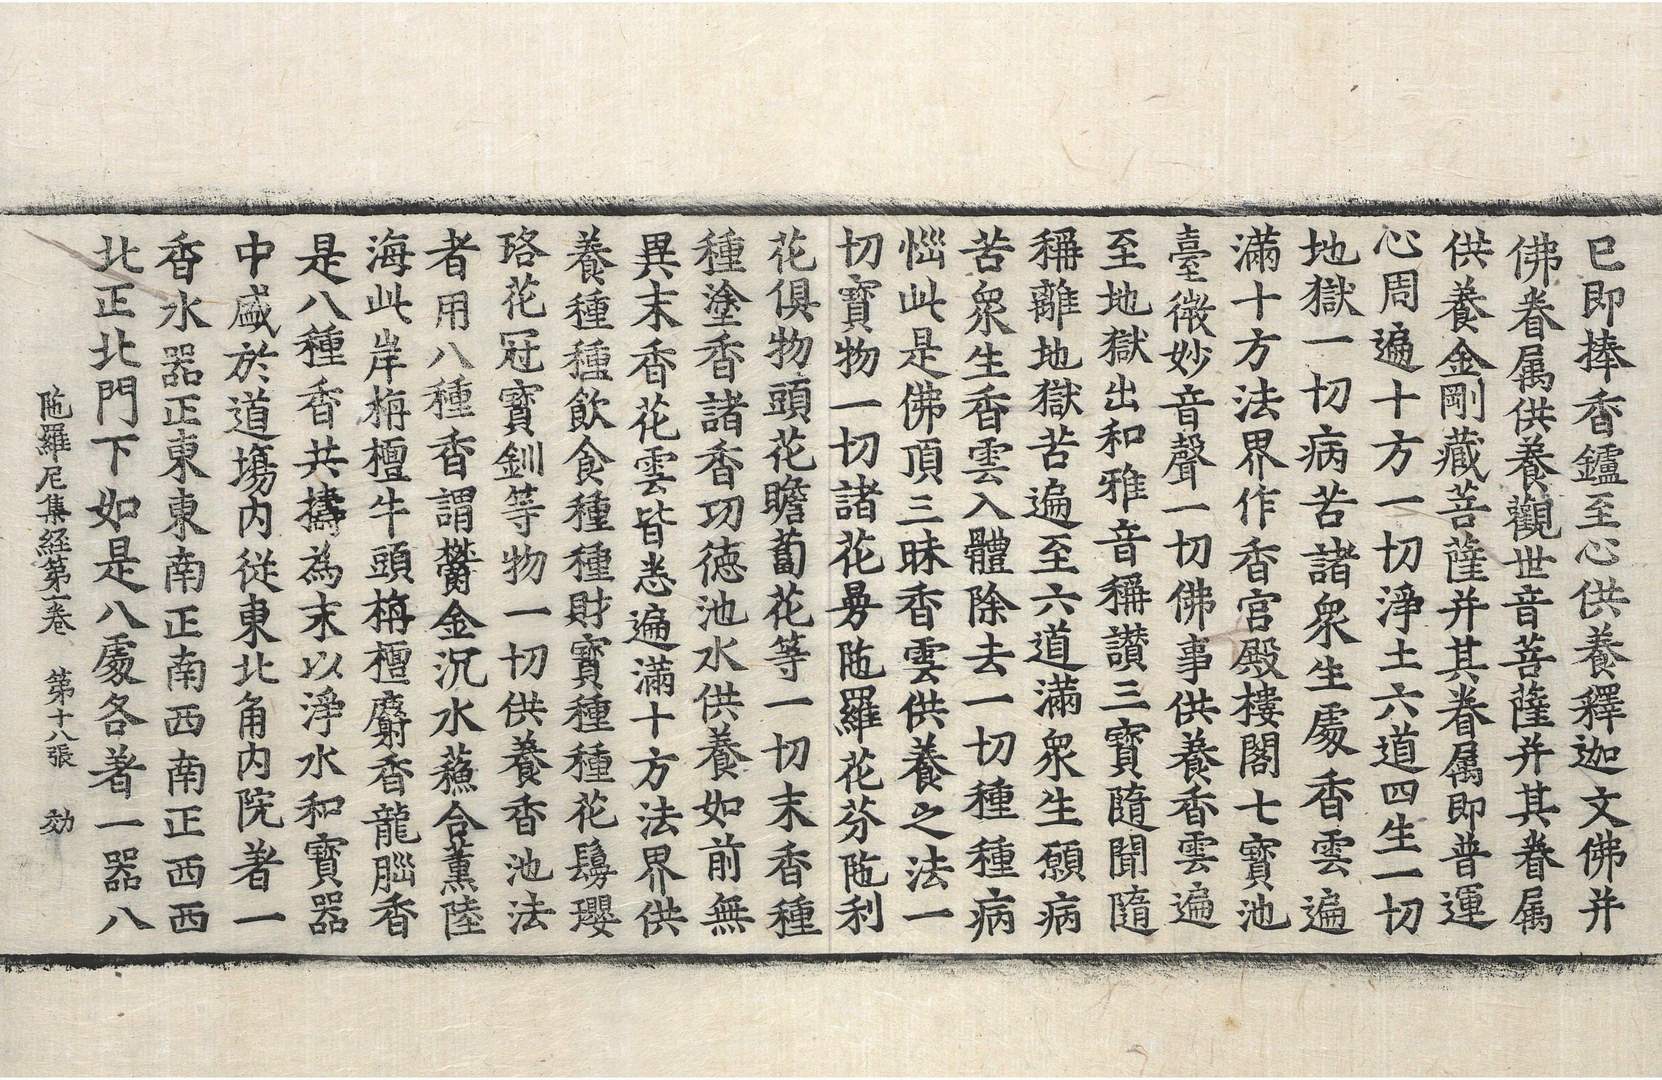 已即捧香鑪至心供養釋迦文佛并
佛眷属供養觀世音菩薩并其眷属
供養金剛藏菩薩并其眷属即普運
心周遍十方一切淨土六道四生一切
地獄一切病苦諸衆生處香雲遍
滿十方法界作香宫殿樓閣七寳池
臺微妙音聲一切佛事供養香雲遍
至地獄出和雅音稱讃三寳隨聞隨
稱離地獄苦遍至六道滿衆生願病
苦衆生香雲入體除去一切種種病
惱此是佛頂三昧香雲供養之法一
切寳物一切諸花曼陁羅花芬陁利
花俱物頭花瞻蔔花等一切末香種
種塗香諸香功徳池水供養如前無
異末香花雲皆悉遍滿十方法界供
養種種飲食種種財寳種種花鬘瓔
珞花冠寳釧等物一切供養香池法
者用八種香謂欝金沉水蘓合薫陸
海此岸栴檀牛頭栴檀麝香龍腦香
是八種香共擣為末以淨水和寳器
中盛於道塲内從東北角内院著一
香水器正東東南正南西南正西西
北正北門下如是八處各著一器八
陁羅尼集経第一卷　第十八張　効